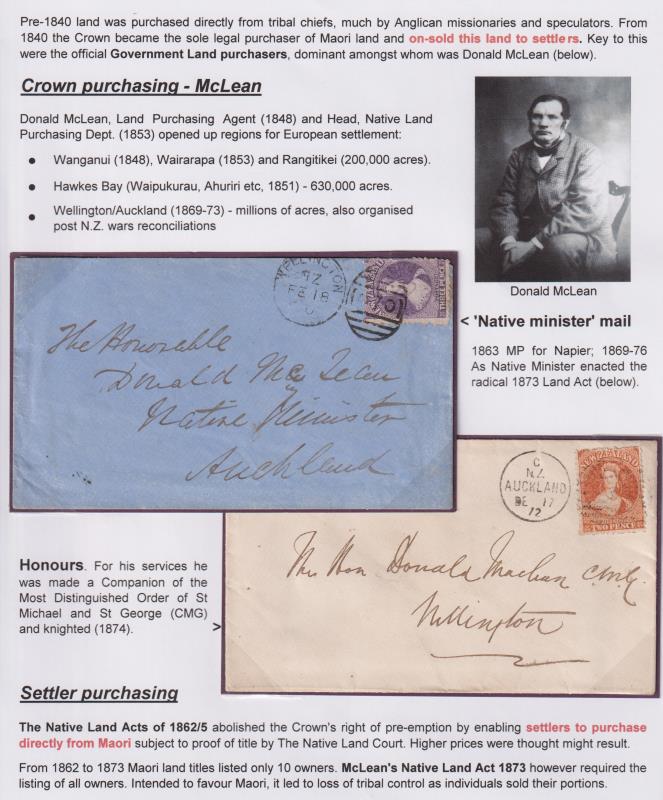 Pre-1840 land was purchased directly from tribal chiefs, much by Anglican missionaries and speculators. From
1840 the Crown became the sole legal purchaser of Maori land and on-sold this land to settlers. Key to this
were the official Government Land purchasers, dominant amongst whom was Donald McLean (below).
Crown purchasing - McLean
Donald McLean, Land Purchasing Agent (1848) and Head, Native Land
Purchasing Dept. (1853) opened up regions for European settlement:
● Wanganui (1848), Wairarapa (1853) and Rangitikei (200,000 acres).
● Hawkes Bay (Waipukurau, Ahuriri etc, 1851) - 630,000 acres.
● Wellington/Auckland (1869-73) - millions of acres, also organised
post N.Z. wars reconciliations
Donald McLean
WELLINGTON
NZ
18
THREE PENCE
The Honorable
Donald McLean
Native Minister
Auckland
< 'Native minister' mail
1863 MP for Napier; 1869-76
As Native Minister enacted the
radical 1873 Land Act (below).
C
N.Z.
AUCKLAND
DE 17
72
NEW ZEALAND
TWO PENCE
The Hon Donald Maclean CMG
Wellington
Honours. For his services he
was made a Companion of the
Most Distinguished Order of St
Michael and St George (CMG)
and knighted (1874). >
Settler purchasing
The Native Land Acts of 1862/5 abolished the Crown's right of pre-emption by enabling settlers to purchase
directly from Maori subject to proof of title by The Native Land Court. Higher prices were thought might result.
From 1862 to 1873 Maori land titles listed only 10 owners. McLean's Native Land Act 1873 however required the
listing of all owners. Intended to favour Maori, it led to loss of tribal control as individuals sold their portions.